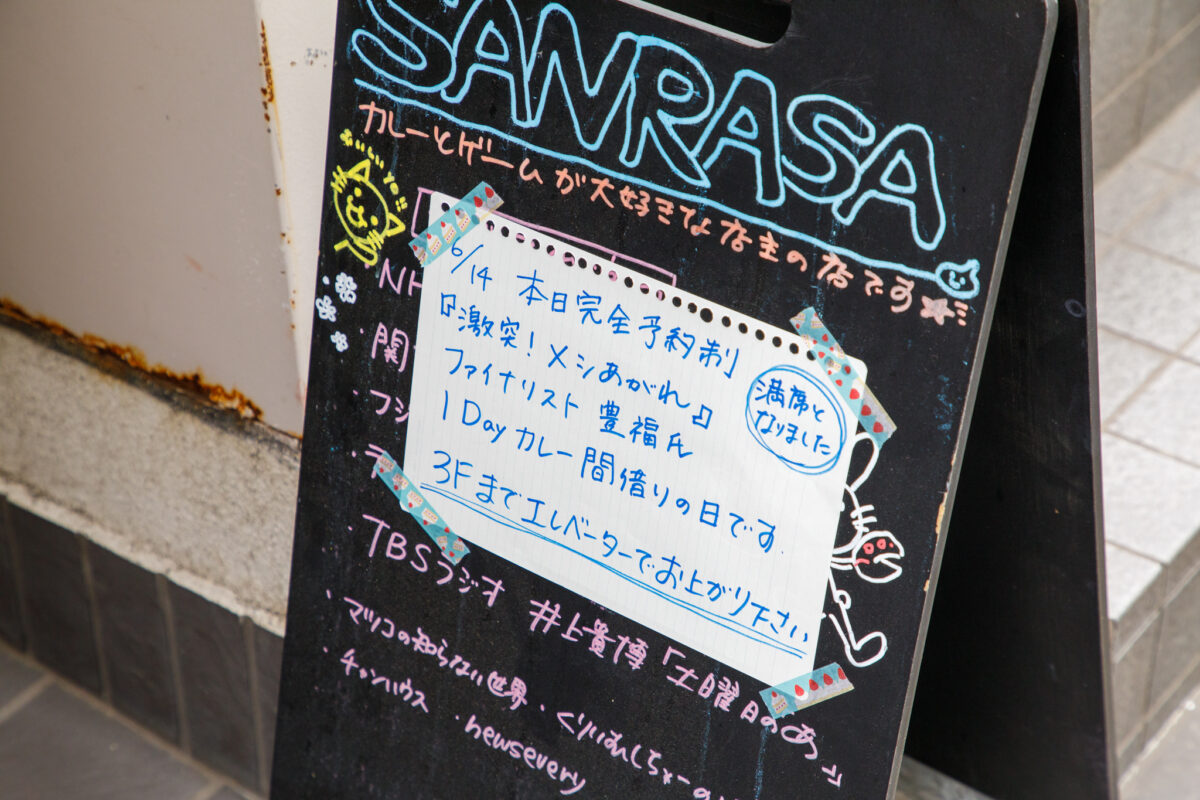 SANRASA
カレーとゲームが大好きな店主の店です
おいしいYO
NH
6/14 本日完全予約制
『激突!メシあがれ』
ファイナリスト 豊福氏
1Dayカレー間借りの日です.
3Fまでエレベーターでお上がり下さい
満席と
なりました
・関
・フジ
・ラ
・TBSラジオ 井上貴博「土曜日のあ」
・マツコの知らない世界・くりぃむしちゅーの
・チャンハウス ・newsevery